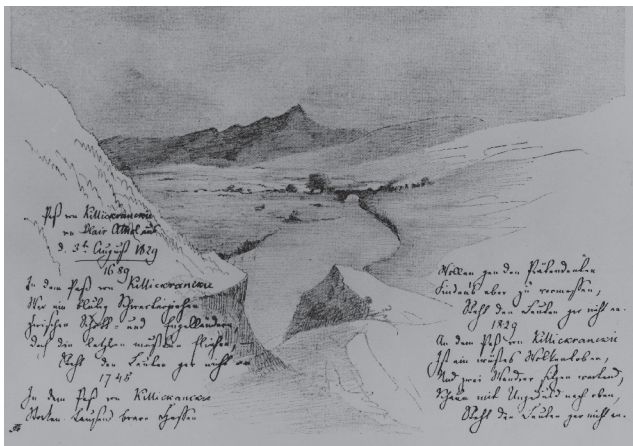 Paß von Killicrankie
von Blair Athol aus
d. 3t August 1829
1689
In dem Paß von Killicrankie
War ein
zwischen Schott- und Engelländern
daß die letztern mußten fliehen, —
Steht den Leuten gar nicht an
1745
In dem Paß von Killicrankie
tausend brave Hessen
Wollten gen den Prätendenten
Fandens aber zu vermessen,
Steht den Leuten gar nicht an.
1829
In dem Paß von Killicrankie
Ist ein wüstes Wolkentoben,
Und zwei Wandrer sitzen wartend,
Schaun mit Ungeduld nach oben,
Steht den Leuten gar nicht an.